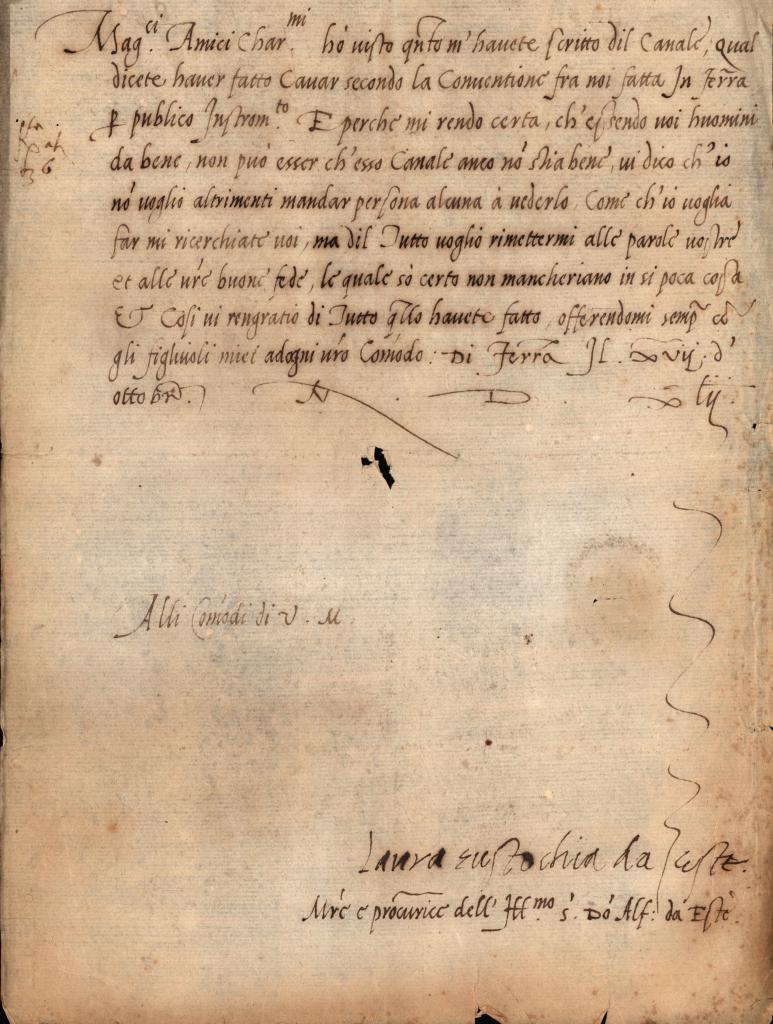 Mag.ci Amici Char.mi hò visto qnto m'havete scritto dil Canale, qual
dicete haver fatto Cavar secondo la Conventione fra noi fatta In Ferra
p publico Instrom.to E perche mi rendo certa, ch'essendo voi huomini
da bene, non può esser ch'esso Canale anco nó stia bene, vi dico ch'io
nó voglio altrimenti mandar persona alcuna à vederlo, Come ch'io voglia
far mi ricerchiate voi, ma dil Tutto voglio rimettermi alle parole vostre
et alle vre buone fede, le quale só certo non mancheriano in si poca cosa
& Cosi vi rengratio di Tutto qllo havete fatto, offerendomi semp có
gli figlivoli miei adogni vro Comodo: Di Ferra Il. xvij. d'
ottobre. M D xlij.
Alli Comodi di V. M
Laura eustochia da este.
Mre e procurice dell' Ill.mo s. Dó Alf: da Este.